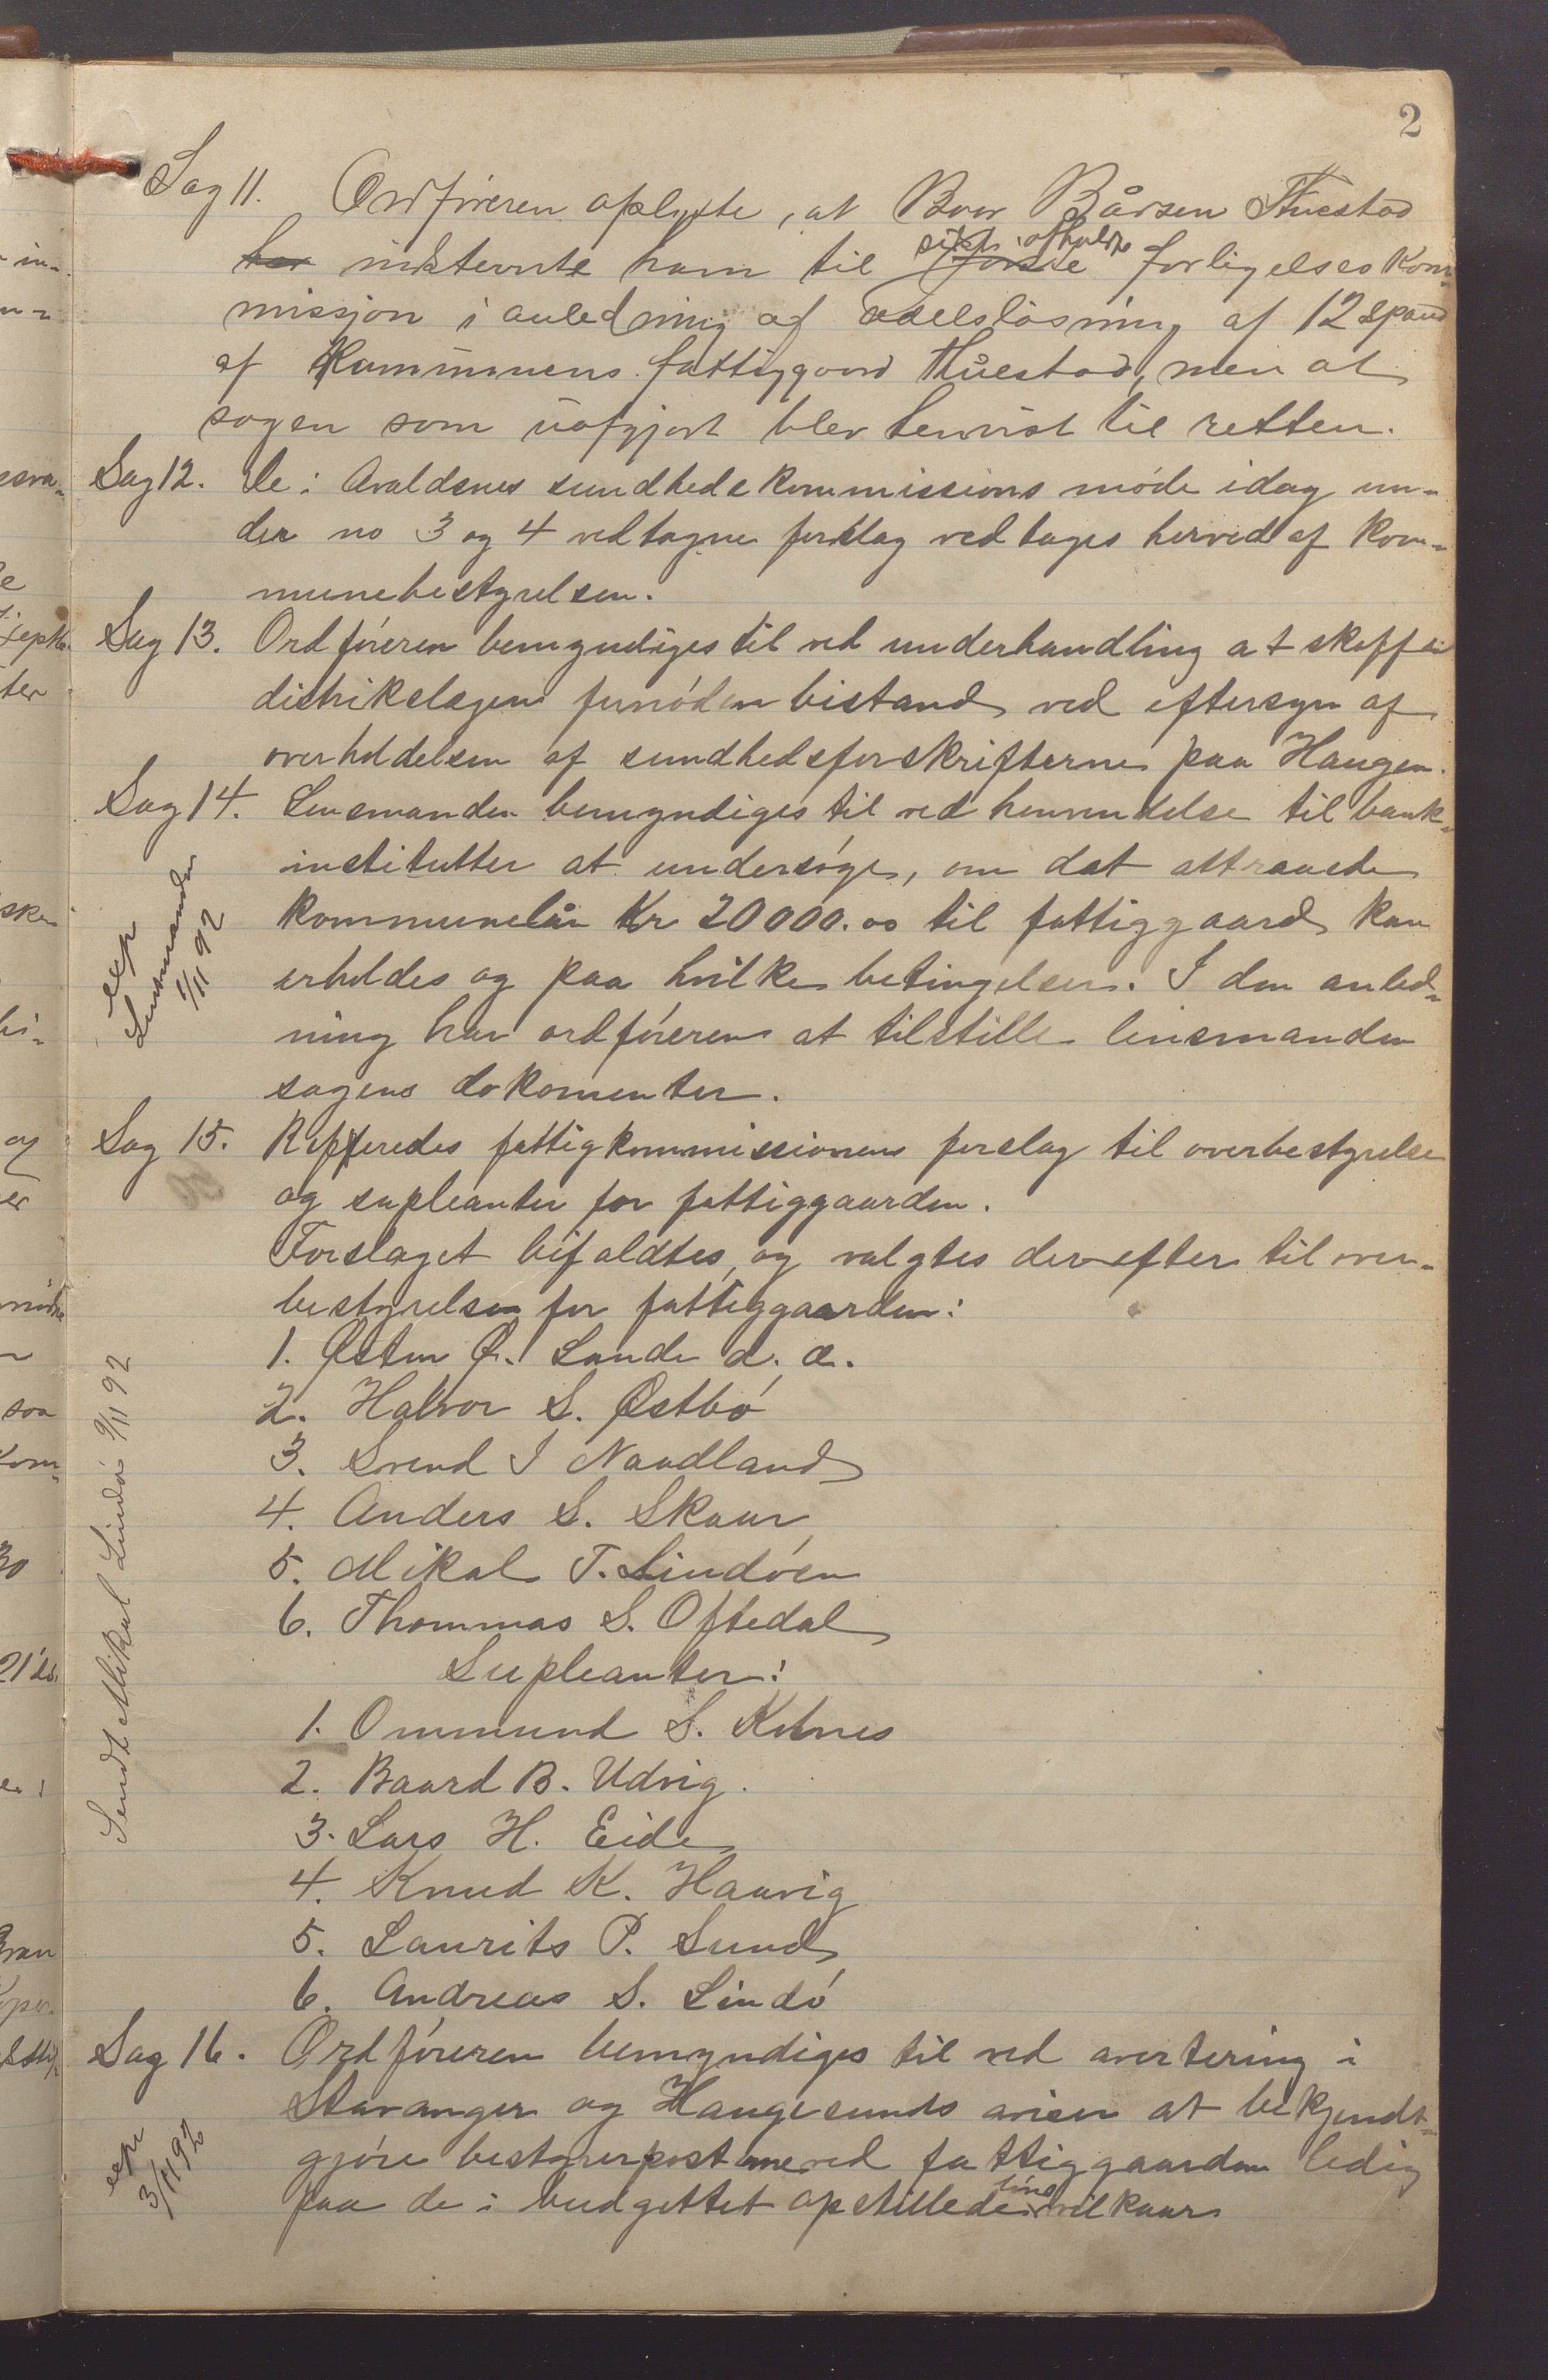 2
Sag 11. Ordføreren oplyste, at Baar Bårsen Thuestad
sidst afholdte
har indstevnte ham til første forligelseskom-
missjon i anledning af odelsløsning af 12 spand
af Kommunens fattiggaard Thuestad, men at
sagen som uafgjort blev henvist til retten.
Sag 12. De i Avaldsnes sundhedskommissions møde idag un-
der no 3 og 4 vedtagne forslag vedtages herved af kom-
munebestyrelsen.
Sag 13. Ordføreren bemyndiges til ved underhandling at skaffe
distrikslægen fornøden bistand ved eftersyn af
overholdelsen af sundhedsforskrifterne paa Haugen.
Sag 14. Lensmanden bemyndiges til ved henvendelse til bank-
institutter at undersøge, om det attraaede
kommunelån Kr 20000.00 til fattiggaard kan
erholdes og paa hvilke betingelser. I den anled-
ning har ordføreren at tilstille lensmanden
sagens dokomenter.
exp
Lensmanden
1/11 92
Sag 15. Refferedes fattigkommissionens forslag til overbestyrelse
og supleanter for fattiggaarden.
Forslaget bifaldtes, og valgtes derefter til over-
bestyrelsen for fattiggaarden:
1. Østen Ø. Lande d. æ.
2. Halvor S. Østbø
3. Svend I Naadland
4. Anders S. Skaar
5. Mikal T. Lindøen
6. Thommas S. Oftedal
Supleanter:
1. Ommund S. Kolnes
2. Baard B. Udvig.
3. Lars H. Eide
4. Knud K. Haavig
5. Laurits P. Sund
6. Andreas S. Lindø
Sendt Mikal Lindø 9/11 92
Sag 16. Ordføreren bemyndiges til ved avertering i
Stavanger og Haugesunds aviser at bekjendt-
gjøre bestyrerposten ved fattiggaarden ledig
paa de i budgettet opstillede løns vilkaar
exp
3/11 92